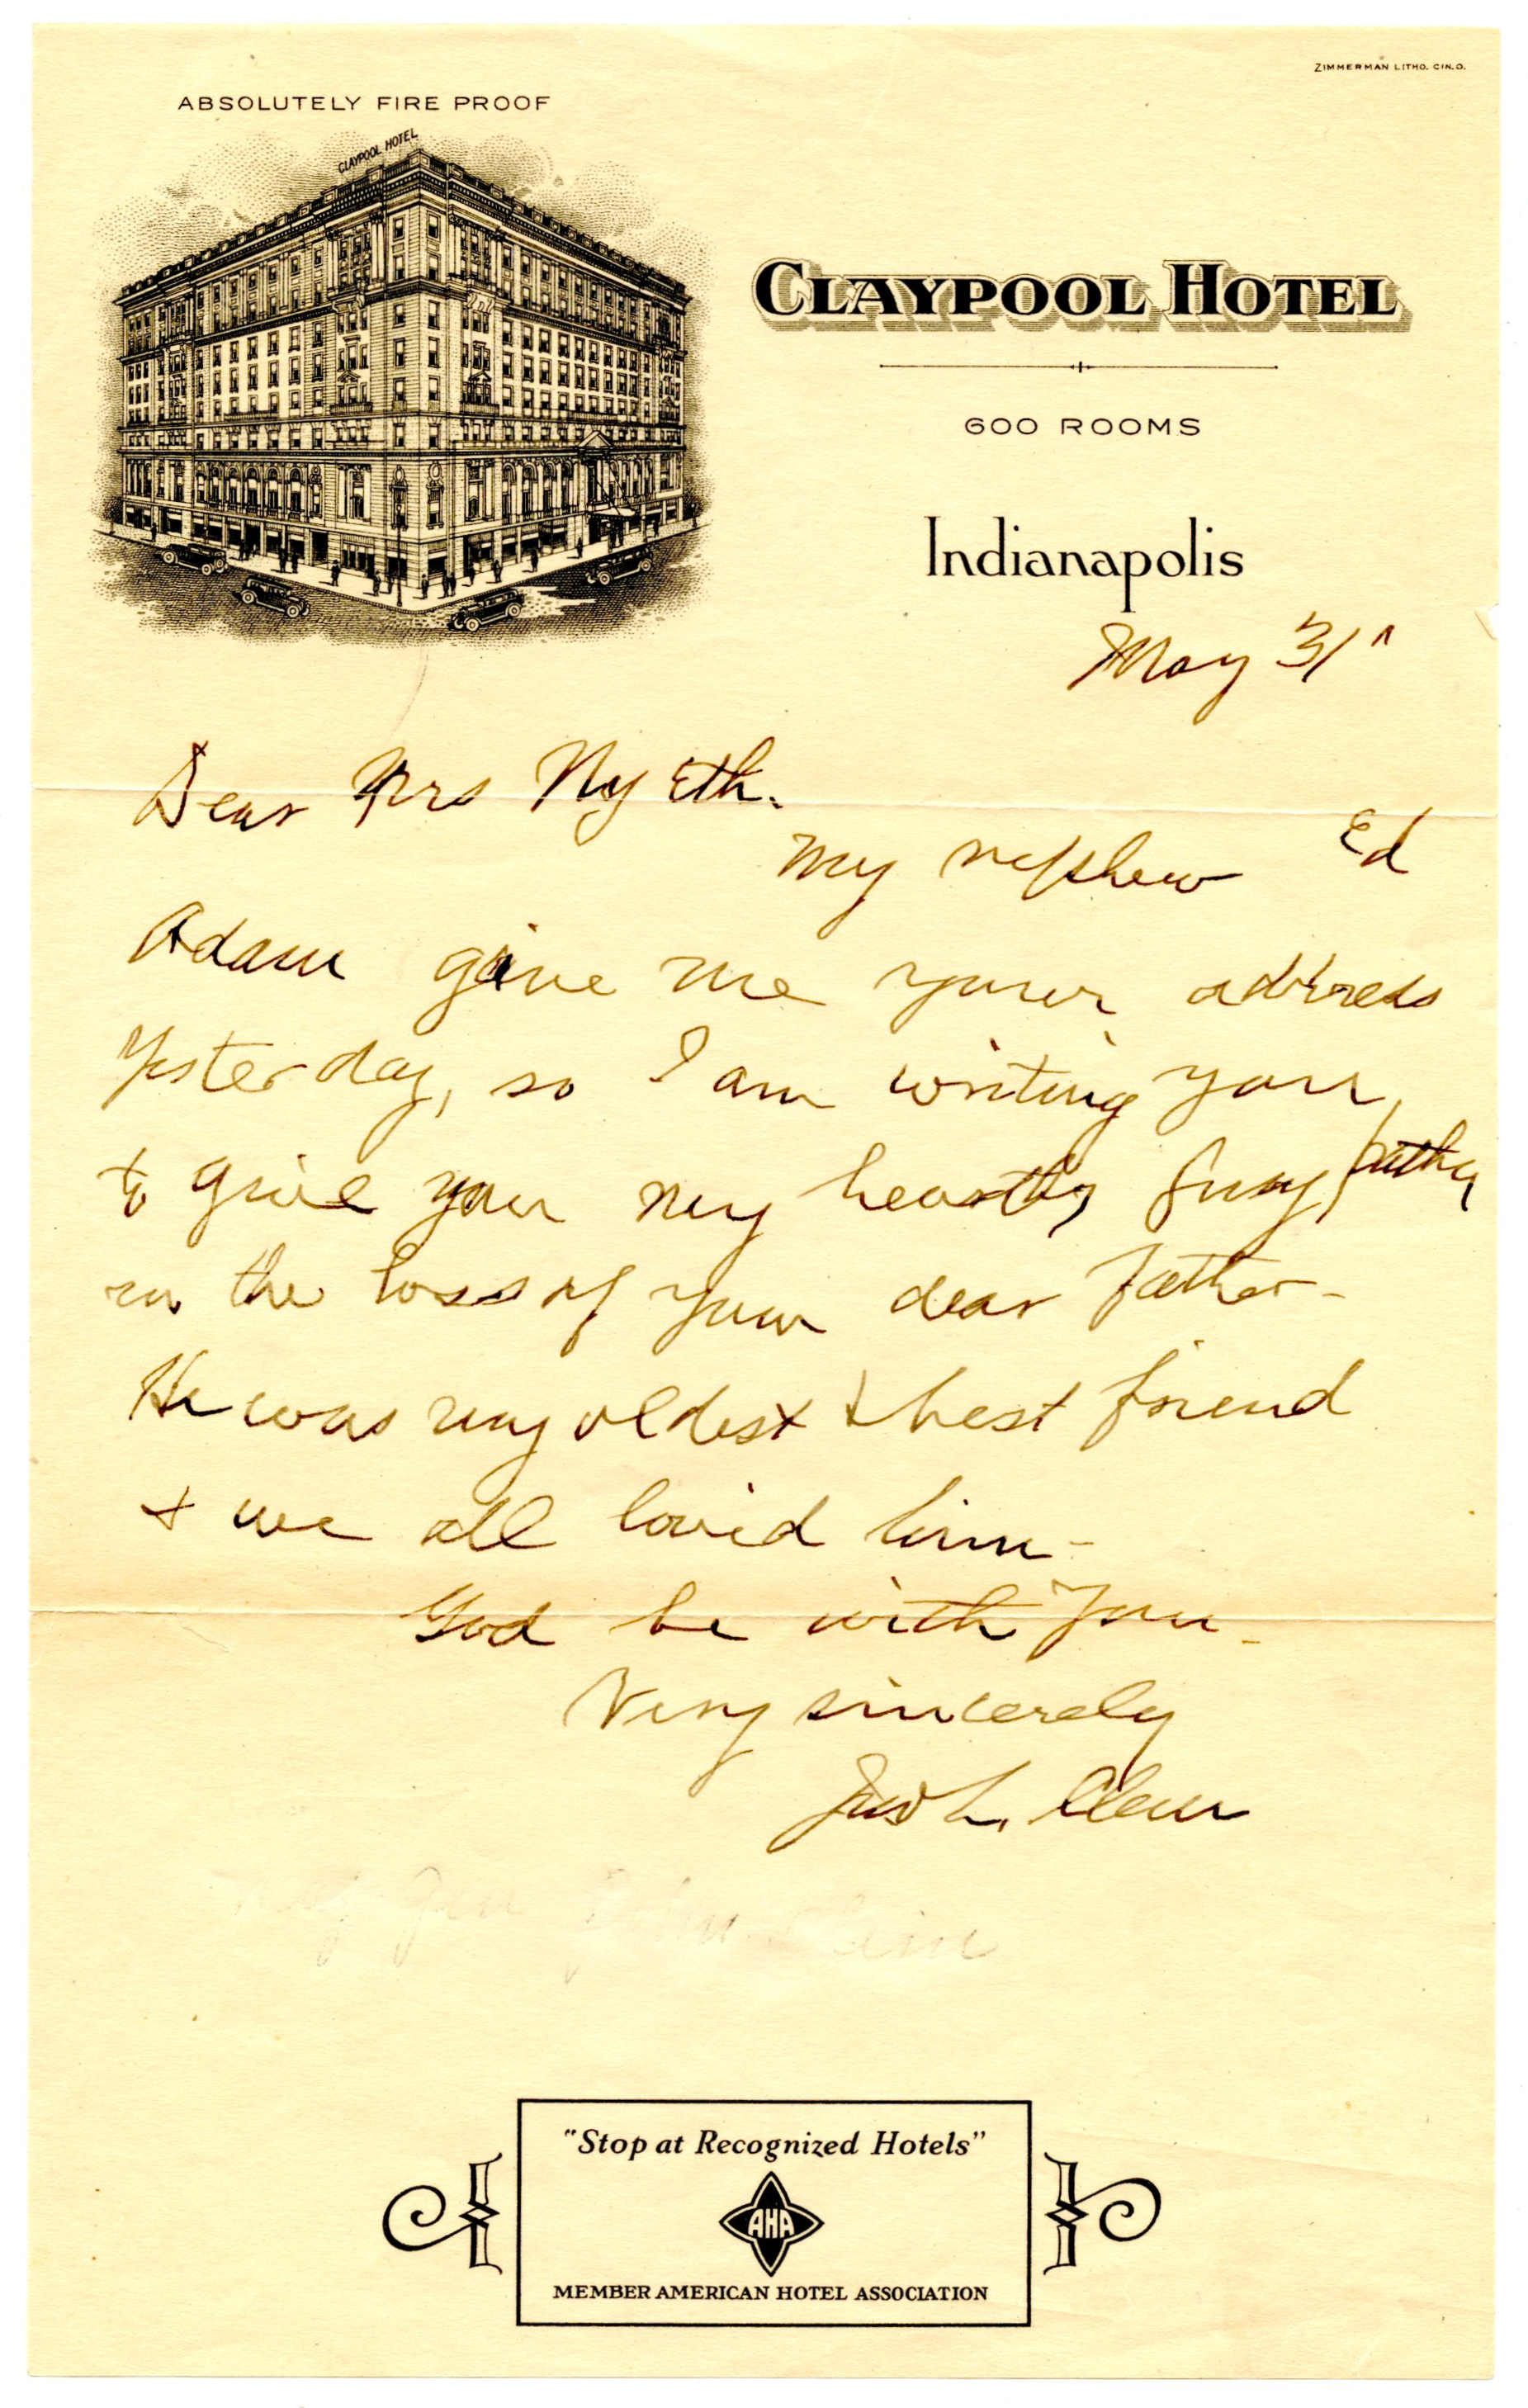 ZIMMERMAN LITHO. CIN.O.
ABSOLUTELY FIRE PROOF
CLAYPOOL HOTEL
CLAYPOOL HOTEL
600 ROOMS
Indianapolis
May 31"
Dear Mrs Nyeth.
My nephew Ed
Adam give me your address
Yesterday, so I am writing you
to give you my hearty sympathy
in the loss of your dear father-
He was my oldest & best friend
& we all loved him-
God be with you-
Very sincerely
Jno L. Clem
Maj Gen John Clem
"Stop at Recognized Hotels"
AHA
MEMBER AMERICAN HOTEL ASSOCIATION